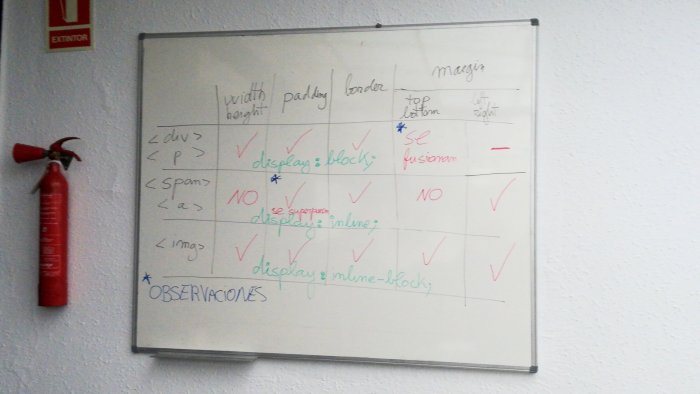 EXTINTOR
margin
width
height
padding
border
top
bottom
left
right
<div>
<p>
✓ ✓ ✓ * se
fusionan
—
display: block;
<span>
<a>
NO * ✓ ✓ NO ✓
se superponen
display: inline;
<img>
✓ ✓ ✓ ✓ ✓
display: inline-block;
* OBSERVACIONES